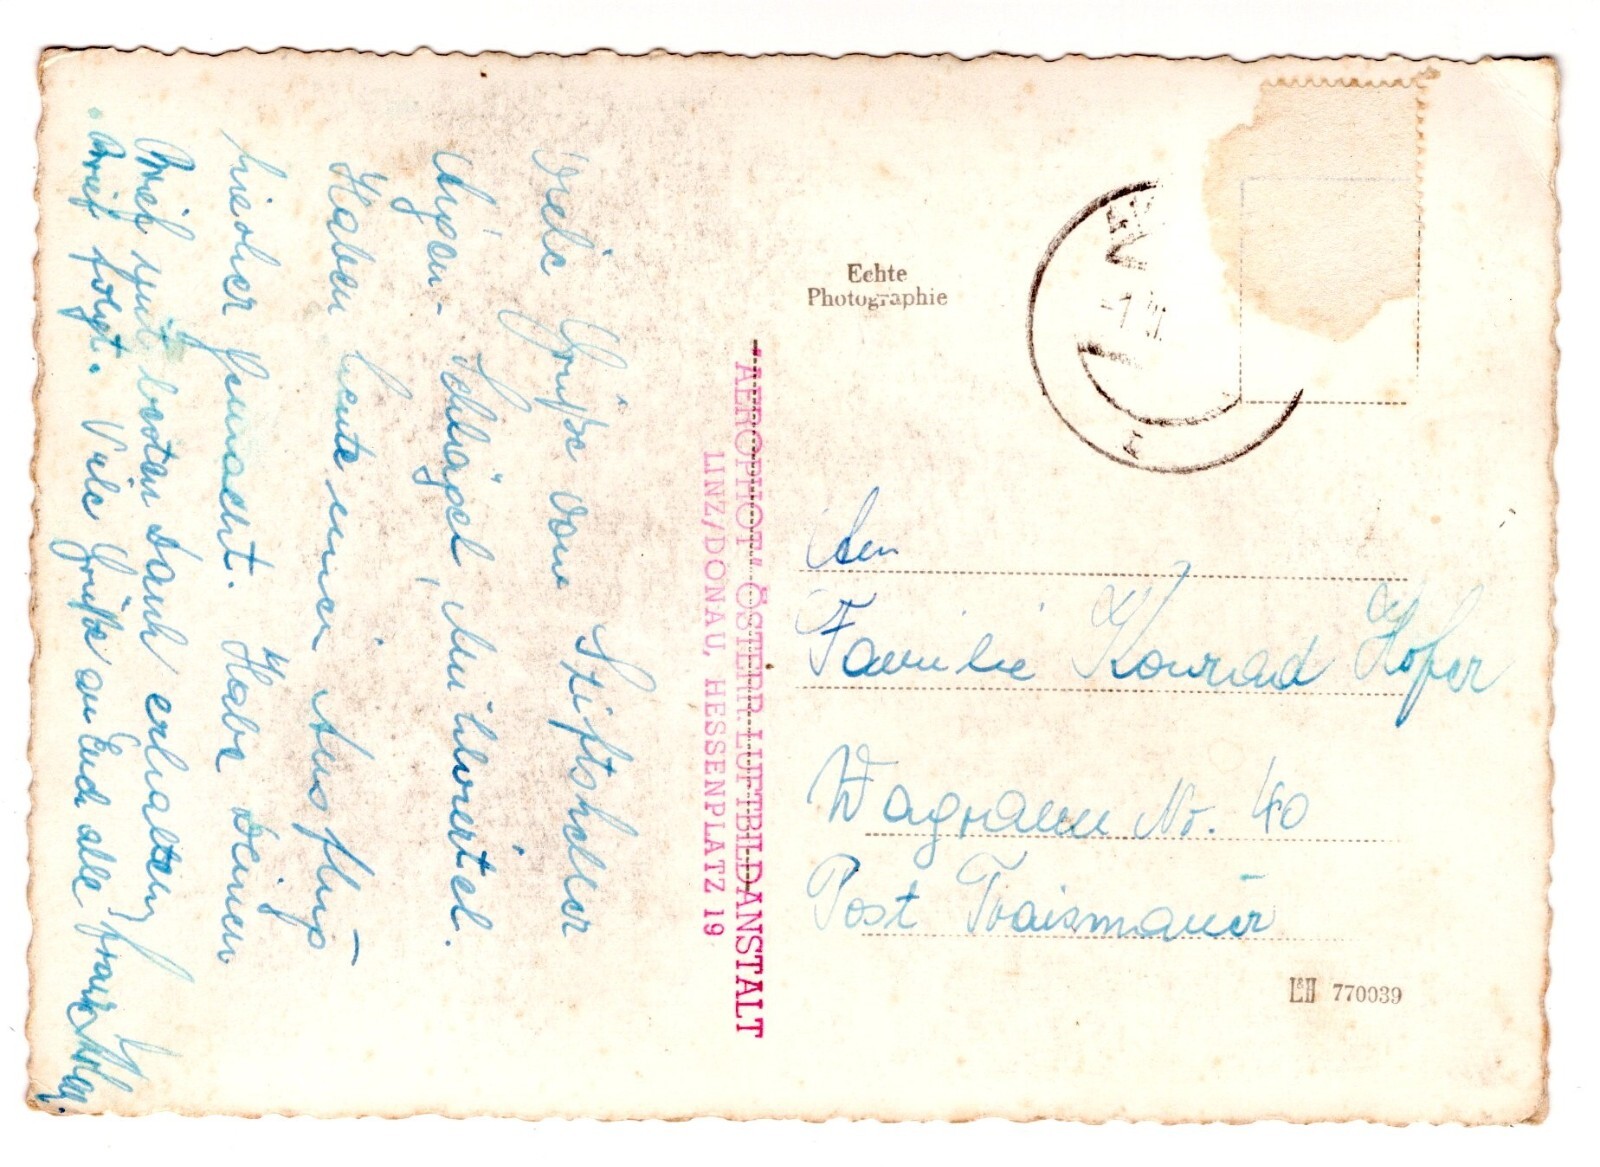 Viele Grüße vom Stiftskeller
Aigen-Schlägel, Mühlviertel.
Haben heute einen Ausflug
hieher gemacht. Habe Deinen
Brief mit besten Dank erhalten,
Brief folgt. Viele Grüße an Euch alle Franz
"AEROPHOT" ÖSTERR. LUFTBILDANSTALT
LINZ/DONAU, HESSENPLATZ 19
Echte
Photographie
An
Familie Konrad Hofer
Wagram Nr. 40
Post Traismauer
L&H 770039